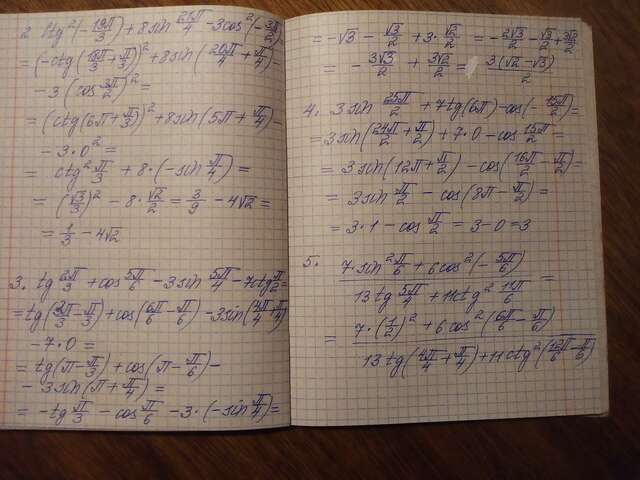 2. ctg²(-19π/3) + 8sin 21π/4 - 3cos²(-3π/2) =
= (-ctg(18π/3 + π/3))² + 8sin(20π/4 + π/4) -
- 3(cos 3π/2)² =
= (ctg(6π + π/3))² + 8sin(5π + π/4) -
- 3·0² =
= ctg² π/3 + 8·(-sin π/4) =
= (√3/3)² - 8·√2/2 = 3/9 - 4√2 =
= 1/3 - 4√2
3. tg 2π/3 + cos 5π/6 - 3sin 5π/4 - 7ctg π/2 =
= tg(3π/3 - π/3) + cos(6π/6 - π/6) - 3sin(4π/4 + π/4) -
- 7·0 =
= tg(π - π/3) + cos(π - π/6) -
- 3sin(π + π/4) =
= -tg π/3 - cos π/6 - 3·(-sin π/4) =
= -√3 - √3/2 + 3·√2/2 = -2√3/2 - √3/2 + 3√2/2
= -3√3/2 + 3√2/2 = 3(√2 - √3)/2
4. 3sin 25π/2 + 7tg(6π) - cos(-15π/2) =
= 3sin(24π/2 + π/2) + 7·0 - cos 15π/2 =
= 3sin(12π + π/2) - cos(16π/2 - π/2) =
= 3sin π/2 - cos(8π - π/2) =
= 3·1 - cos π/2 = 3 - 0 = 3
5. (7·sin² π/6 + 6cos²(-5π/6)) / (13tg 5π/4 + 11ctg² 11π/6) =
= (7·(1/2)² + 6cos²(6π/6 - π/6)) / (13tg(4π/4 + π/4) + 11ctg²(12π/6 - π/6))